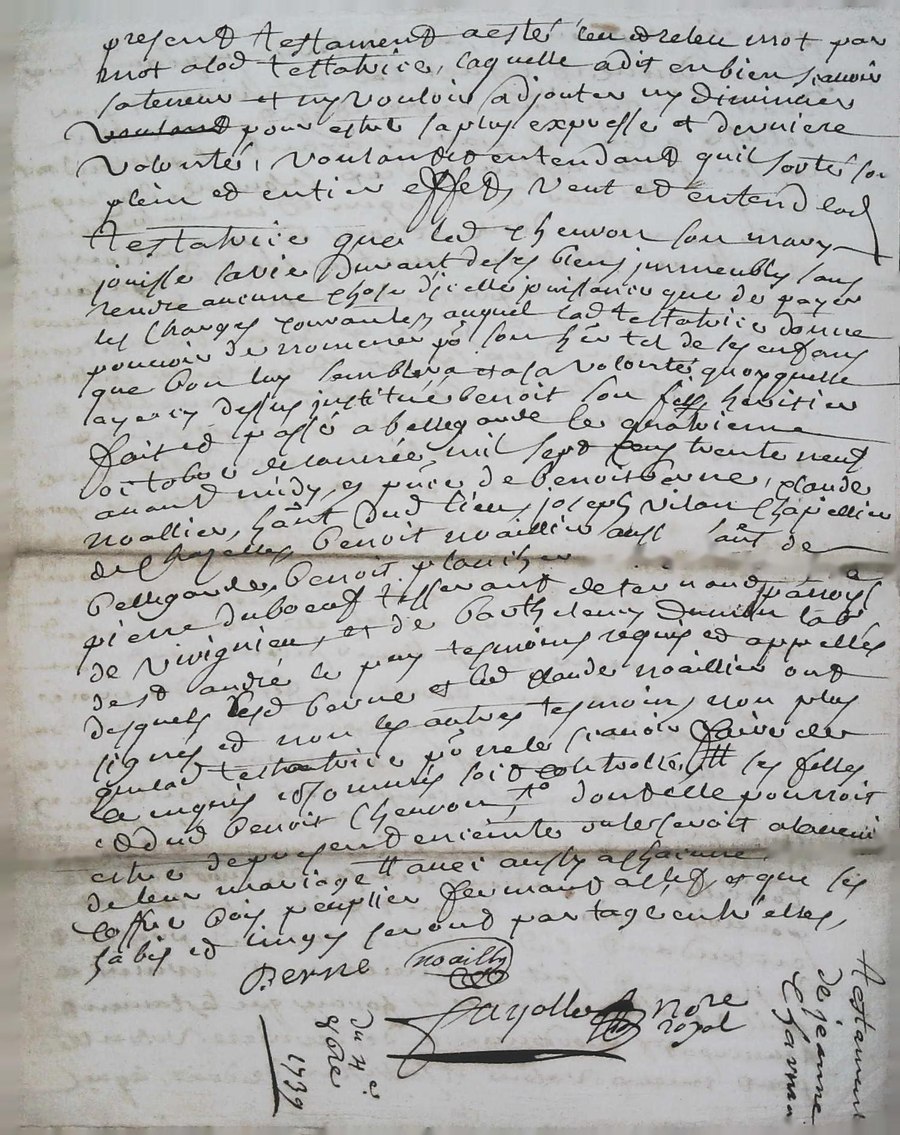 present testament a esté leu et releu mot par
mot a lad testatrice, laquelle a dit en bien scavoir
sa teneur et ny vouloir adjouter ny diminuer
voulant pour estre sa plus expresse et derniere
volonté, voulant et entendant quil sorte son
plein et entier effet, veut et entend lad
testatrice que led Chervon son mary
jouisse sa vie durant de ses biens immeubles sans
rendre aucune chose dicelle jouissance que de payer
les charges courantes, auquel lad testatrice donne
pouvoir de nommer po son hér tel de ses enfans
que bon luy semblera et a sa volonté quoyquelle
aye cy dessus institué benoit son fils heritier
fait et passé a bellegarde le quatrieme
octobre de lannée mil sept cens trente neuf
avant midy, es pnce de benoit berne, claude
noallier, hant dud lieu, joseph vilan chapellier
de Chazelles, benoit noaillier aussi hant de
bellegarde, benoit plancher
pierre duboeuf tisserant de ternand parroisse
de vivignieu, et de barthelemy lab
de st andré le puy tesmoins requis et appellés
desquels led berne et led claude noaillier ont
signés et non les autres tesmoins non plus
que lad testatrice po ne le scavoir faire de
ce enquis et sommés soit controllé, # les filles
et dud benoit Chervon, dont elle pourroit
estre de present enceinte ou le seroit a lavenir
de leur mariage # avec aussy a chacune
coffre bois peuplier fermant a clef, et que ses
habis et linges seront partagé entre elles,
Berne noailly
fayolle nore
royal
du 4 e.
8bre
1739
testament
de jeanne